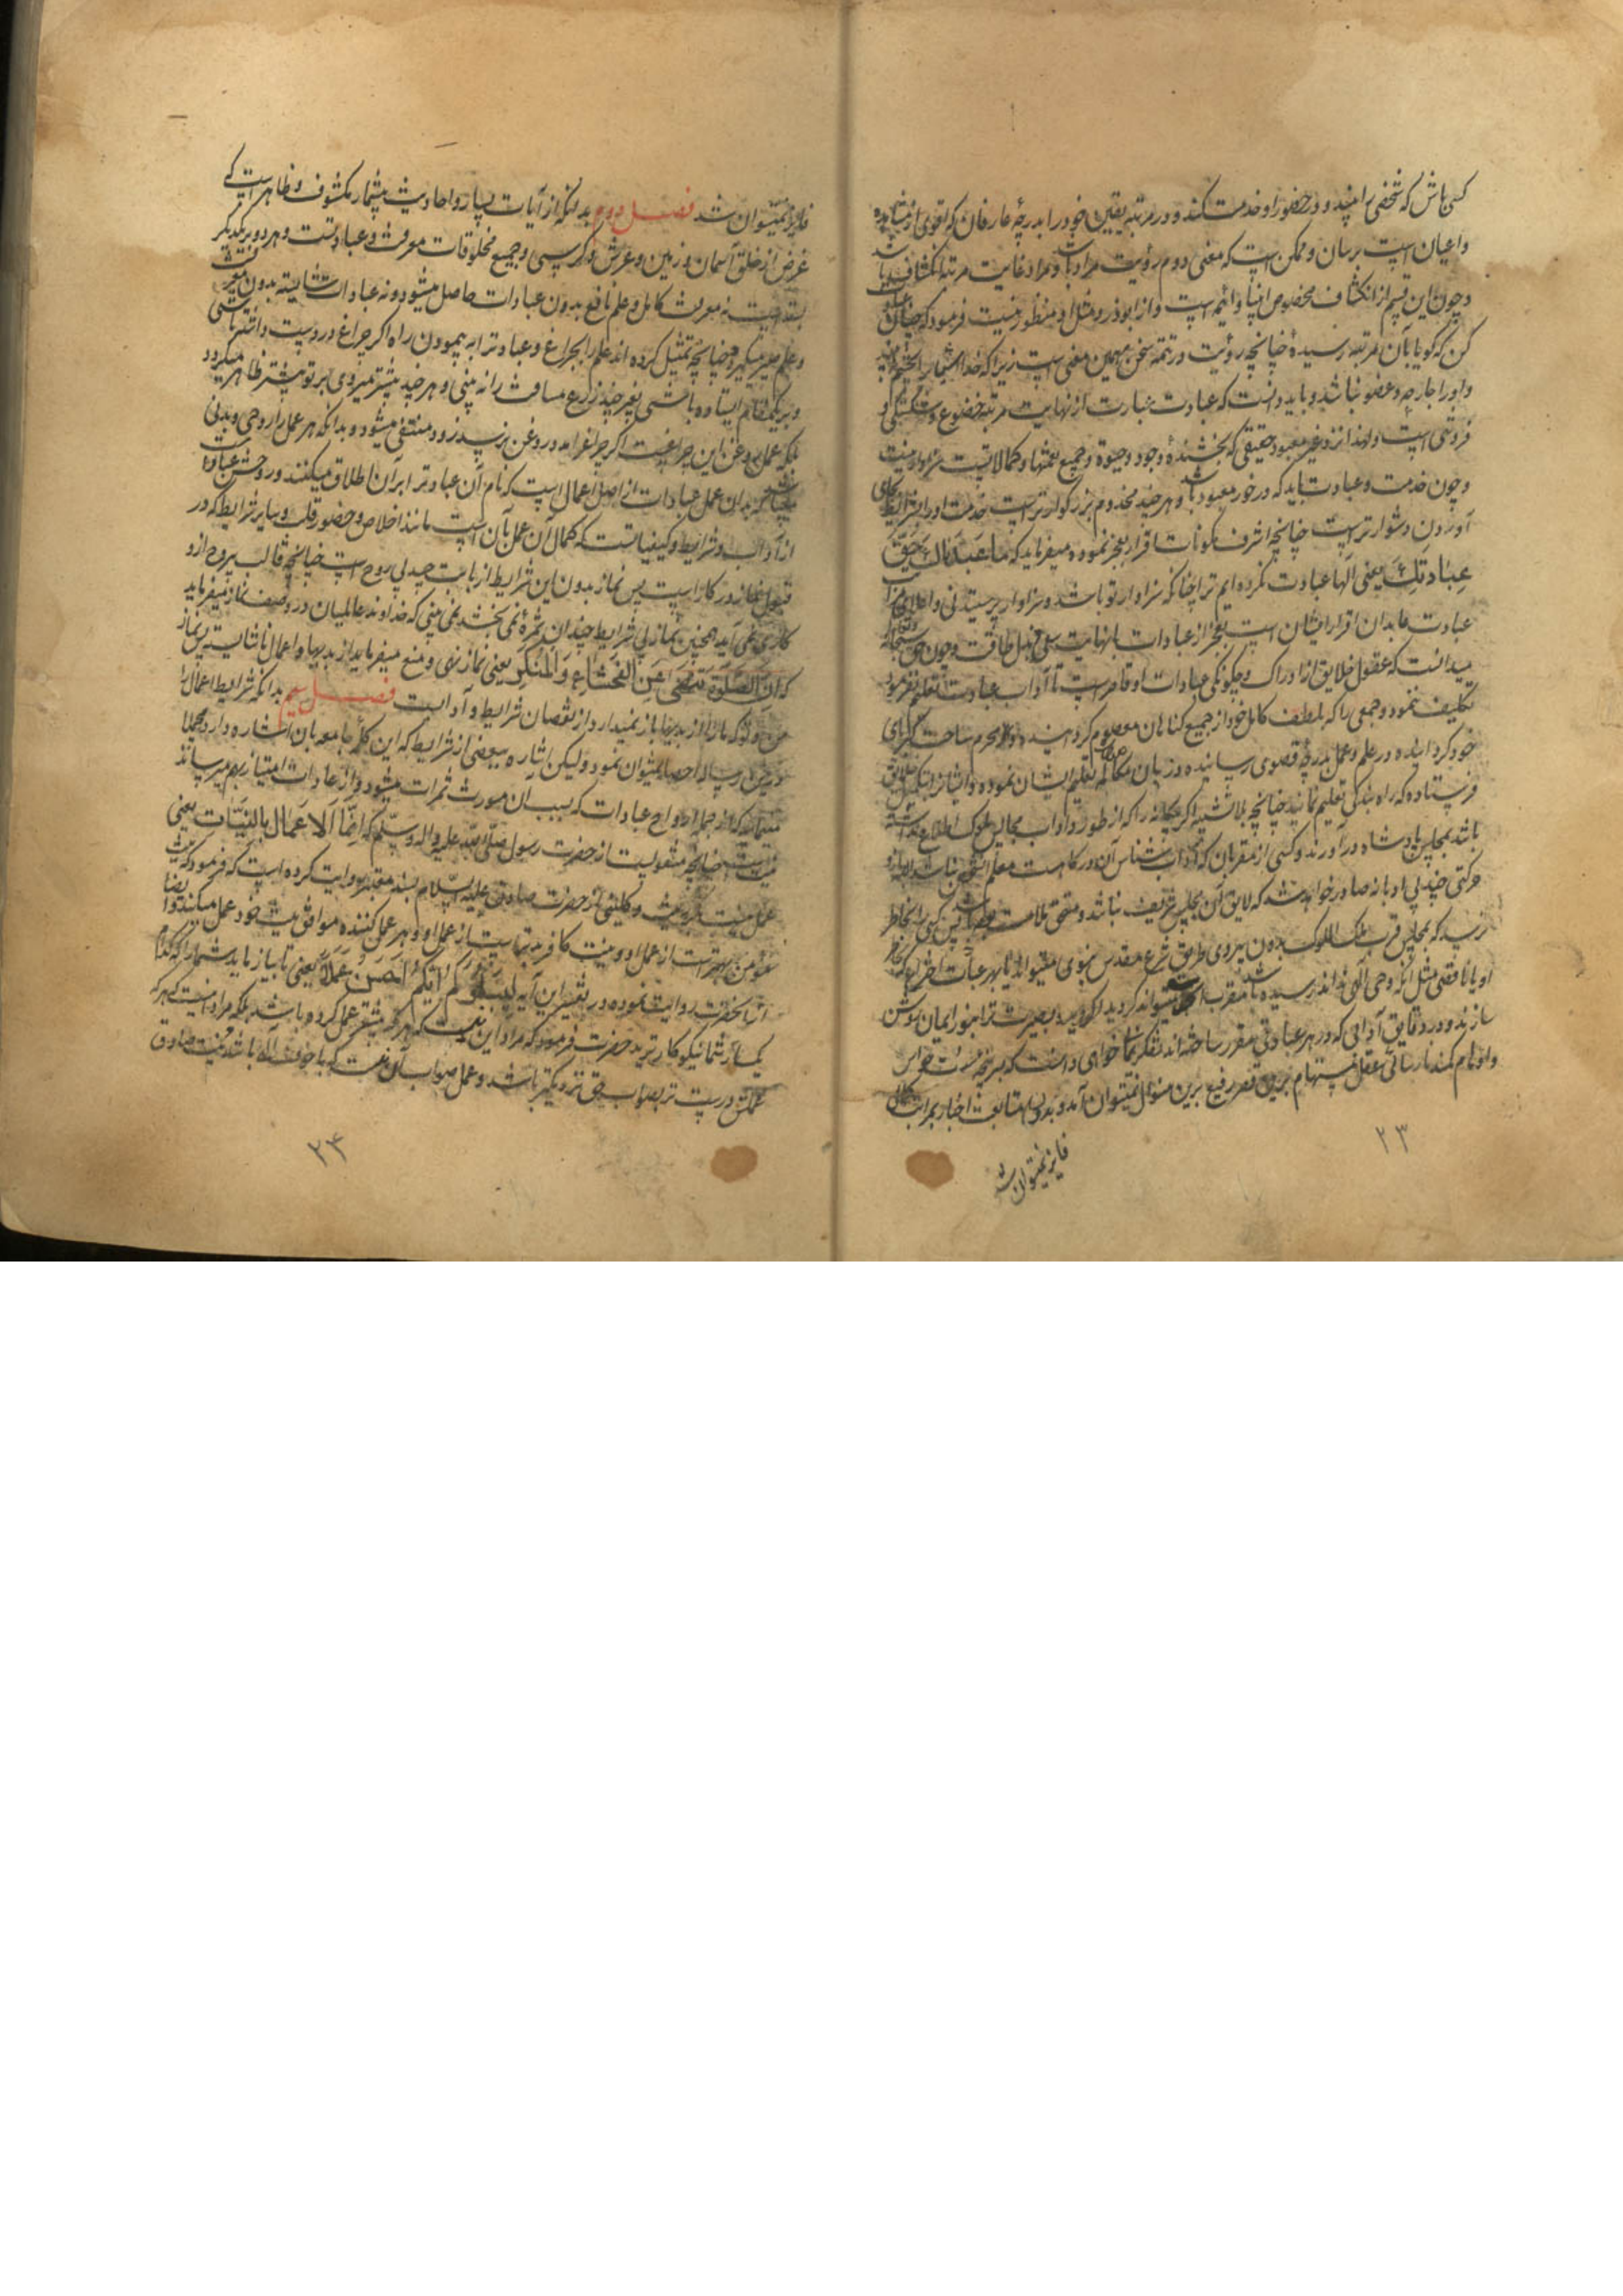 کسی باش که شخصی را بیند و در حضور او خدمت کند و در مرتبه یقین خود را بدرجهٔ عارفان که اقوی از مشاهده
و اعیان است برسان و ممکن است که معنی دوم رؤیت مراد باشد و مراد غایت مرتبه انکشاف باشد
و چون این قسم از انکشاف مخصوص انبیا و ائمه است و از ابوذر و مثل او منظور نیست فرمود که چنان عبادت
کن که گویا بآن مرتبه رسیدهٔ چنانچه رؤیت در تتمه سخن بهمین معنی است زیرا که خدا اشیا را بچشم نمی بیند
و او را جارحه و عضو نباشد و باید دانست که عبادت عبارت از نهایت مرتبه خضوع و شکستگی و
فروتنی است و لهذا نزد غیر معبود حقیقی که بخشندهٔ وجود و حیوة و جمیع نعمتها و کمالاتست سزاوار نیست
و چون خدمت و عبادت باید که در خور معبود باشد و هر چند مخدوم بزرگوارتر است خدمت او را بشرایط بجای
آوردن دشوارتر است چنانچه اشرف مکونات اقرار بعجز نموده میفرماید که ما عَبَدناكَ حَقَّ
عِبادَتِكَ یعنی الها عبادت نکرده ایم ترا چنانکه سزاوار تو باشد و سزاوار پرستیدنی و اعلای مراتب
عبادت عابدان اقرار ایشان است بعجز از عبادات با نهایت سعی و بذل طاقت و چون حق سبحانه و تعالی
میدانست که عقول خلایق از ادراک و چگونگی عبادات او قاصر است تا آداب عبادت تعلیم نفرمود
تکلیف ننمود و جمعی را که بلطف کامل خود از جمیع گناهان معصوم گردانیده و محرم ساحت کبریای
خود گردانیده در علم و عمل بدرجه قصوی رسانیده و زبان مکالمه تعلیم ایشان نموده و ایشانرا بتکمیل خلایق
فرستاده که راه بندگی تعلیم نمایند چنانچه بلا تشبیه اگر بیگانه را که از طور و آداب مجالس ملوک اطلاع نداشته
باشد بمجلس پادشاه در آورند و کسی از مقربان که آداب شناس آن درگاه است معلم او نباشد البته ازو
حرکتی چند بی ادبانه صادر خواهد شد که لایق آن مجلس شریف نباشد و مستحق ملامت باشد پس کسی را بخاطر
نرسد که بمجلس قرب ملک الملوک بدون پیروی طریق شرع مقدس نبوی میتواند یا بهر عبادت اختراعی که بخاطر
او یا ناقصی مثل او که وحی الهی نداند رسیده باشد مقرب میتواند گردید اگر دیده بصیرت ترا بنور ایمان روشن
سازند و در دقایق آدابی که در هر عبادتی مقرر ساخته اند تفکر نمائی خواهی دانست که بسرپنجه حواس
و اوهام کمند نارسائی عقل مستهام برین قصر رفیع برین منوال نمیتوان آمد و بدون متابعت اخبار بمراتب کمال
فایز نمیتوان شد
۲۳
فایز نمیتوان شد فصل دوم بدانکه از آیات بسیار و احادیث بیشمار مکشوف و ظاهر است که
غرض از خلق آسمان و زمین و عرش و کرسی و جمیع مخلوقات معرفت و عبادتست و هر دو بریکدیگر
بسته است نه معرفت کامل و علم نافع بدون عبادات حاصل میشود و نه عبادات شایسته بدون معرفت
و علم میسر میگردد چنانچه تمثیل کرده اند علم را بچراغ و عبادترا به پیمودن راه اگر چراغ در دست داشته باشی
و بریکمقام ایستاده باشی بغیر چند ذرع مسافت را نه بینی و هر چند پیشتر میروی بر تو بیشتر ظاهر میگردد
بلکه عمل روغن این چراغست اگر چراغرا مدد روغن نرسد زود منتفی میشود و بدانکه هر عمل را روحی و بدنی
میباشد بدان عمل عبادات از اصل اعمال است که نام آن عبادتر ابر آن اطلاق میکنند و روحش عبارت
از آداب و شرایط و کیفیاتست که کمال آن عمل بآن است مانند اخلاص و حضور قلب و سایر شرایط که در
قبول نماز در کار است پس نماز بدون این شرایط از بابت جسد بی روح است چنانچه قالب بیروح ازو
کاری نمی آید همچنین نماز بی شرایط چندان ثمرهٔ نمی بخشد نمی بینی که خداوند عالمیان در وصف نماز میفرماید
که اِنَّ الصَّلوةَ تَنهی عَنِ الفَحشاءِ وَ المُنکَرِ یعنی نماز نهی و منع میفرماید از بدیها و اعمال ناشایسته پس نماز
من و تو که ما را از بدیها باز نمیدارد از نقصان شرایط و آدابست فصل سیم بدانکه شرایط اعمال را
درین رساله احصا نمیتوان نمود و لیکن اشاره ببعضی از شرایط که این کلمه جامعه بآن اشاره دارد مجملا
مینماید که از جمله ارواح عبادات که بسبب آن مورث ثمرات میشود و از عادات امتیاز بهم میرساند
نیت است چنانچه منقولست از حضرت رسول صلّی اللّه علیه و اله و سلّم که اِنَّمَا اَلاَعمَال بِالنِّیّات یعنی
عمل نیست مگر به نیت و کلینی از حضرت صادق علیه السّلام بسند معتبر روایت کرده است که فرمود که نیت
مؤمن بهتر است از عمل او و نیت کافر بدتر است از عمل او و هر عمل کننده موافق نیت خود عمل میکند و ایضا
از آنحضرت روایت نموده در تفسیر این آیه لِیَبلُوَکُم اَیُّکُم اَحسَنُ عَمَلاً یعنی تا بیازماید شما را که کدام
یک از شما نیکوکارترید حضرت فرمود که مراد این نیست که هر که بیشتر عمل کرده باشد بلکه مراد اینست که هر که
عملش درست تر بصواب و حق نزدیکتر باشد و عمل صواب آن نیست که با خوف الهی باشد و نیت صادق
۲۴